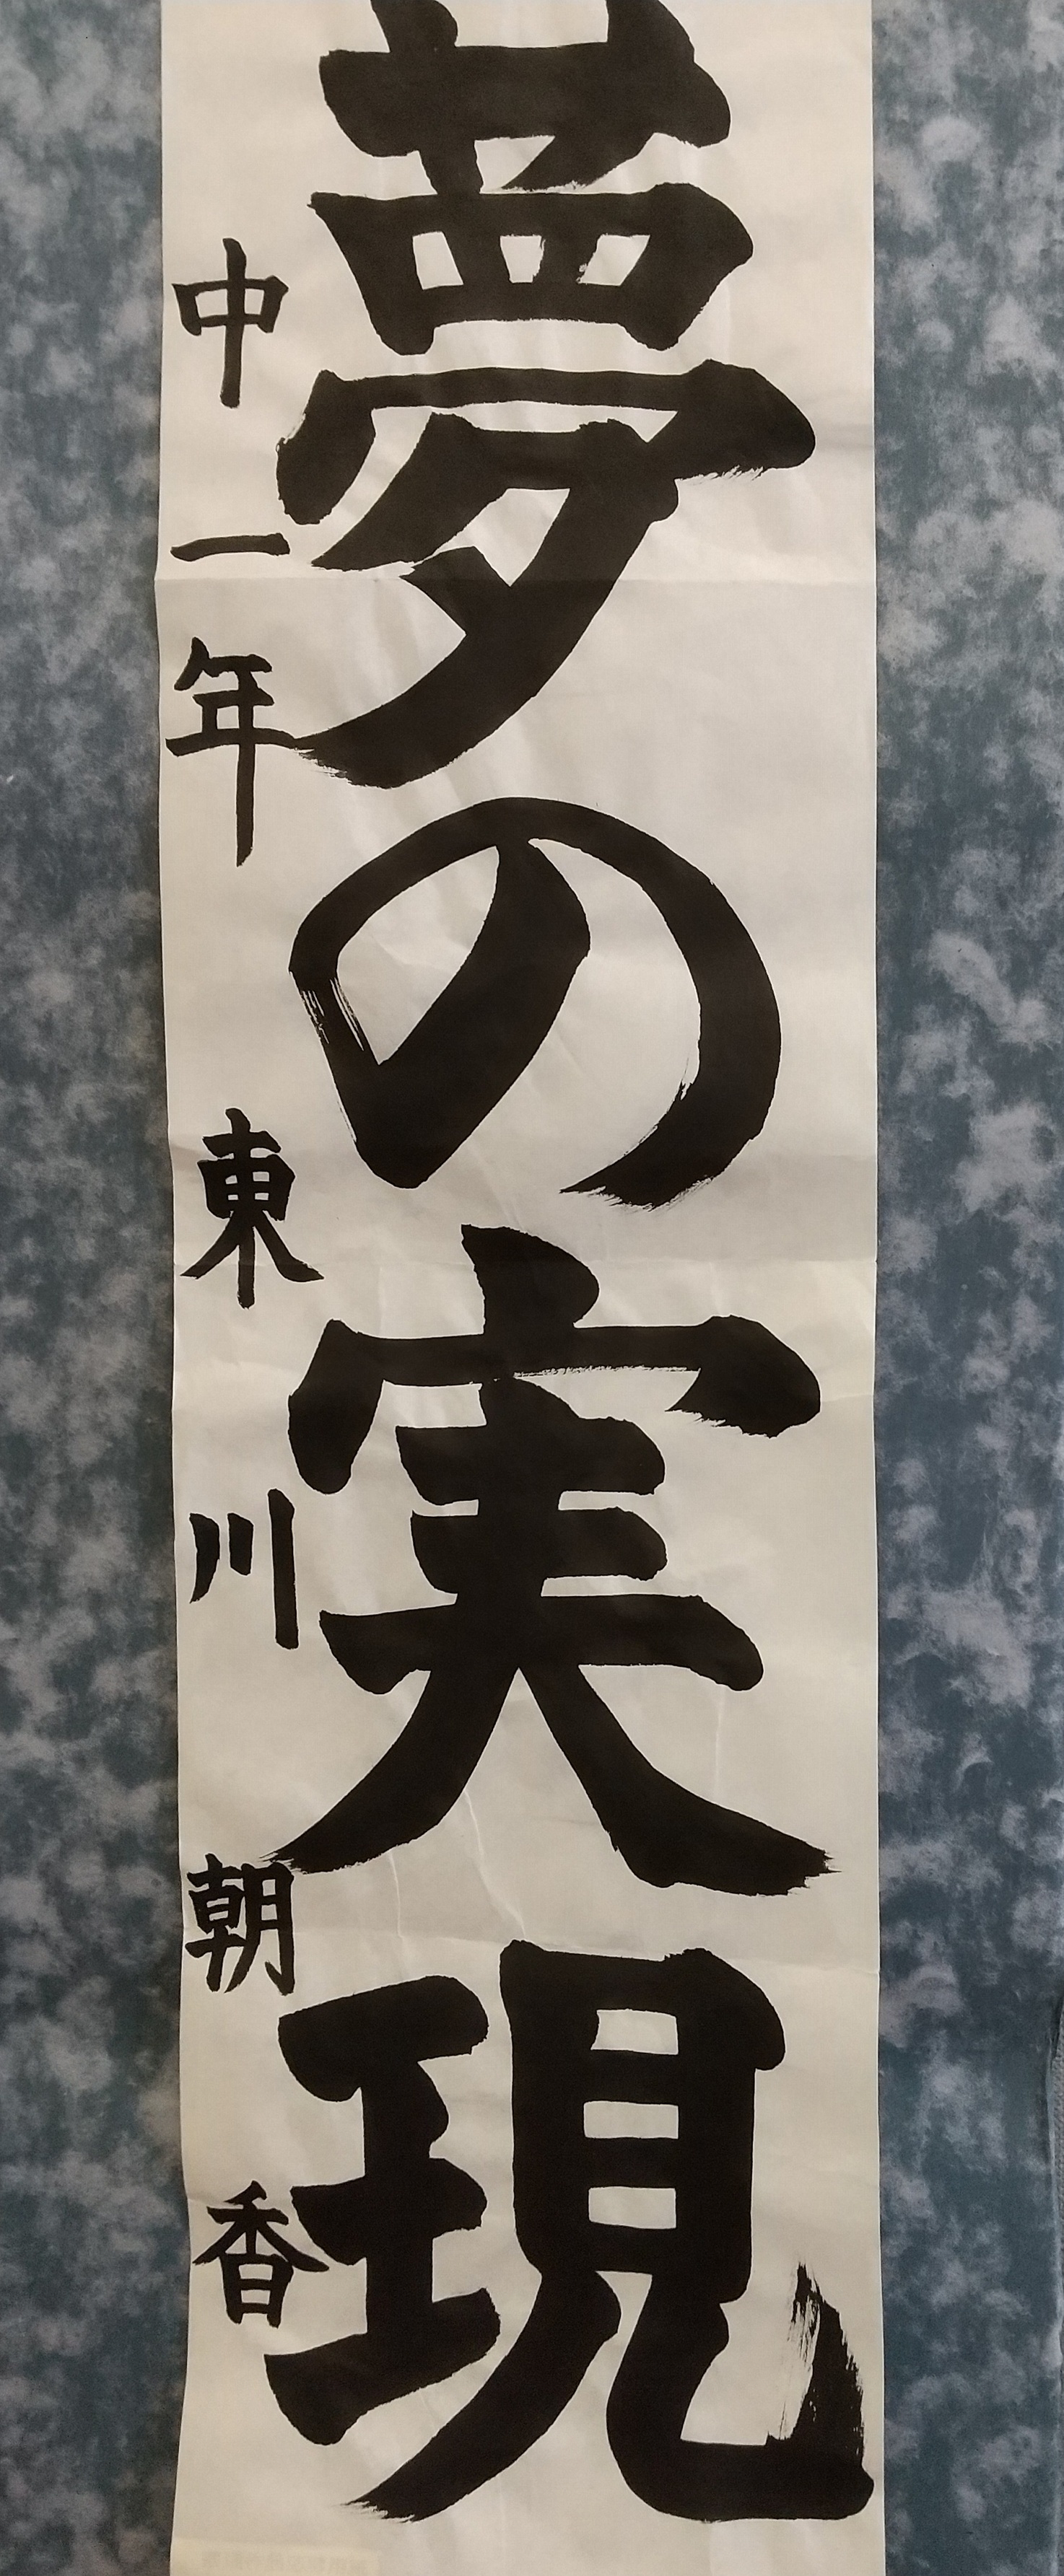 夢の実現
中一年 東川朝香